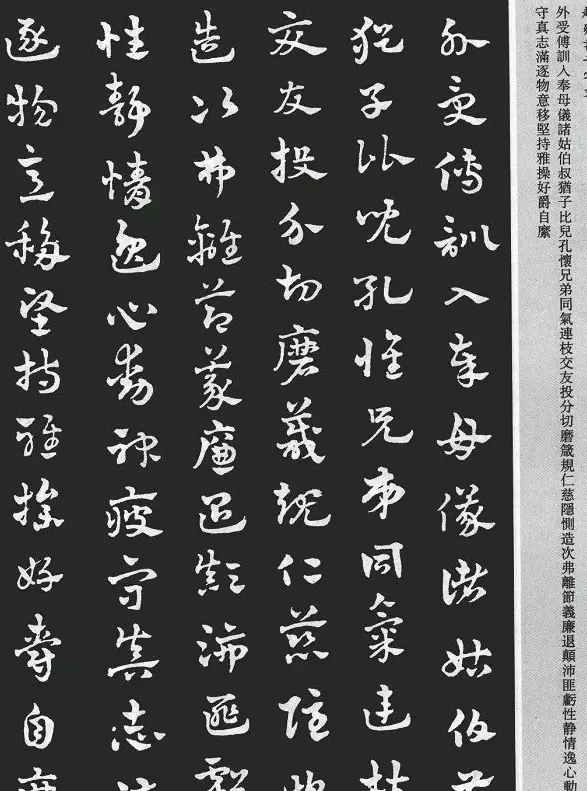 外受傅訓入奉母儀諸姑伯叔猶子比兒孔懷兄弟同氣連枝交友投分切磨箴規仁慈隱惻造次弗離節義廉退顛沛匪虧性静情逸心動
守真志滿逐物意移堅持雅操好爵自縻
外受傅訓入奉母儀諸姑伯叔
猶子比兒孔懷兄弟同氣連枝
交友投分切磨箴規仁慈隱惻
造次弗離節義廉退顛沛匪虧
性静情逸心動神疲守真志滿
逐物意移堅持雅操好爵自縻